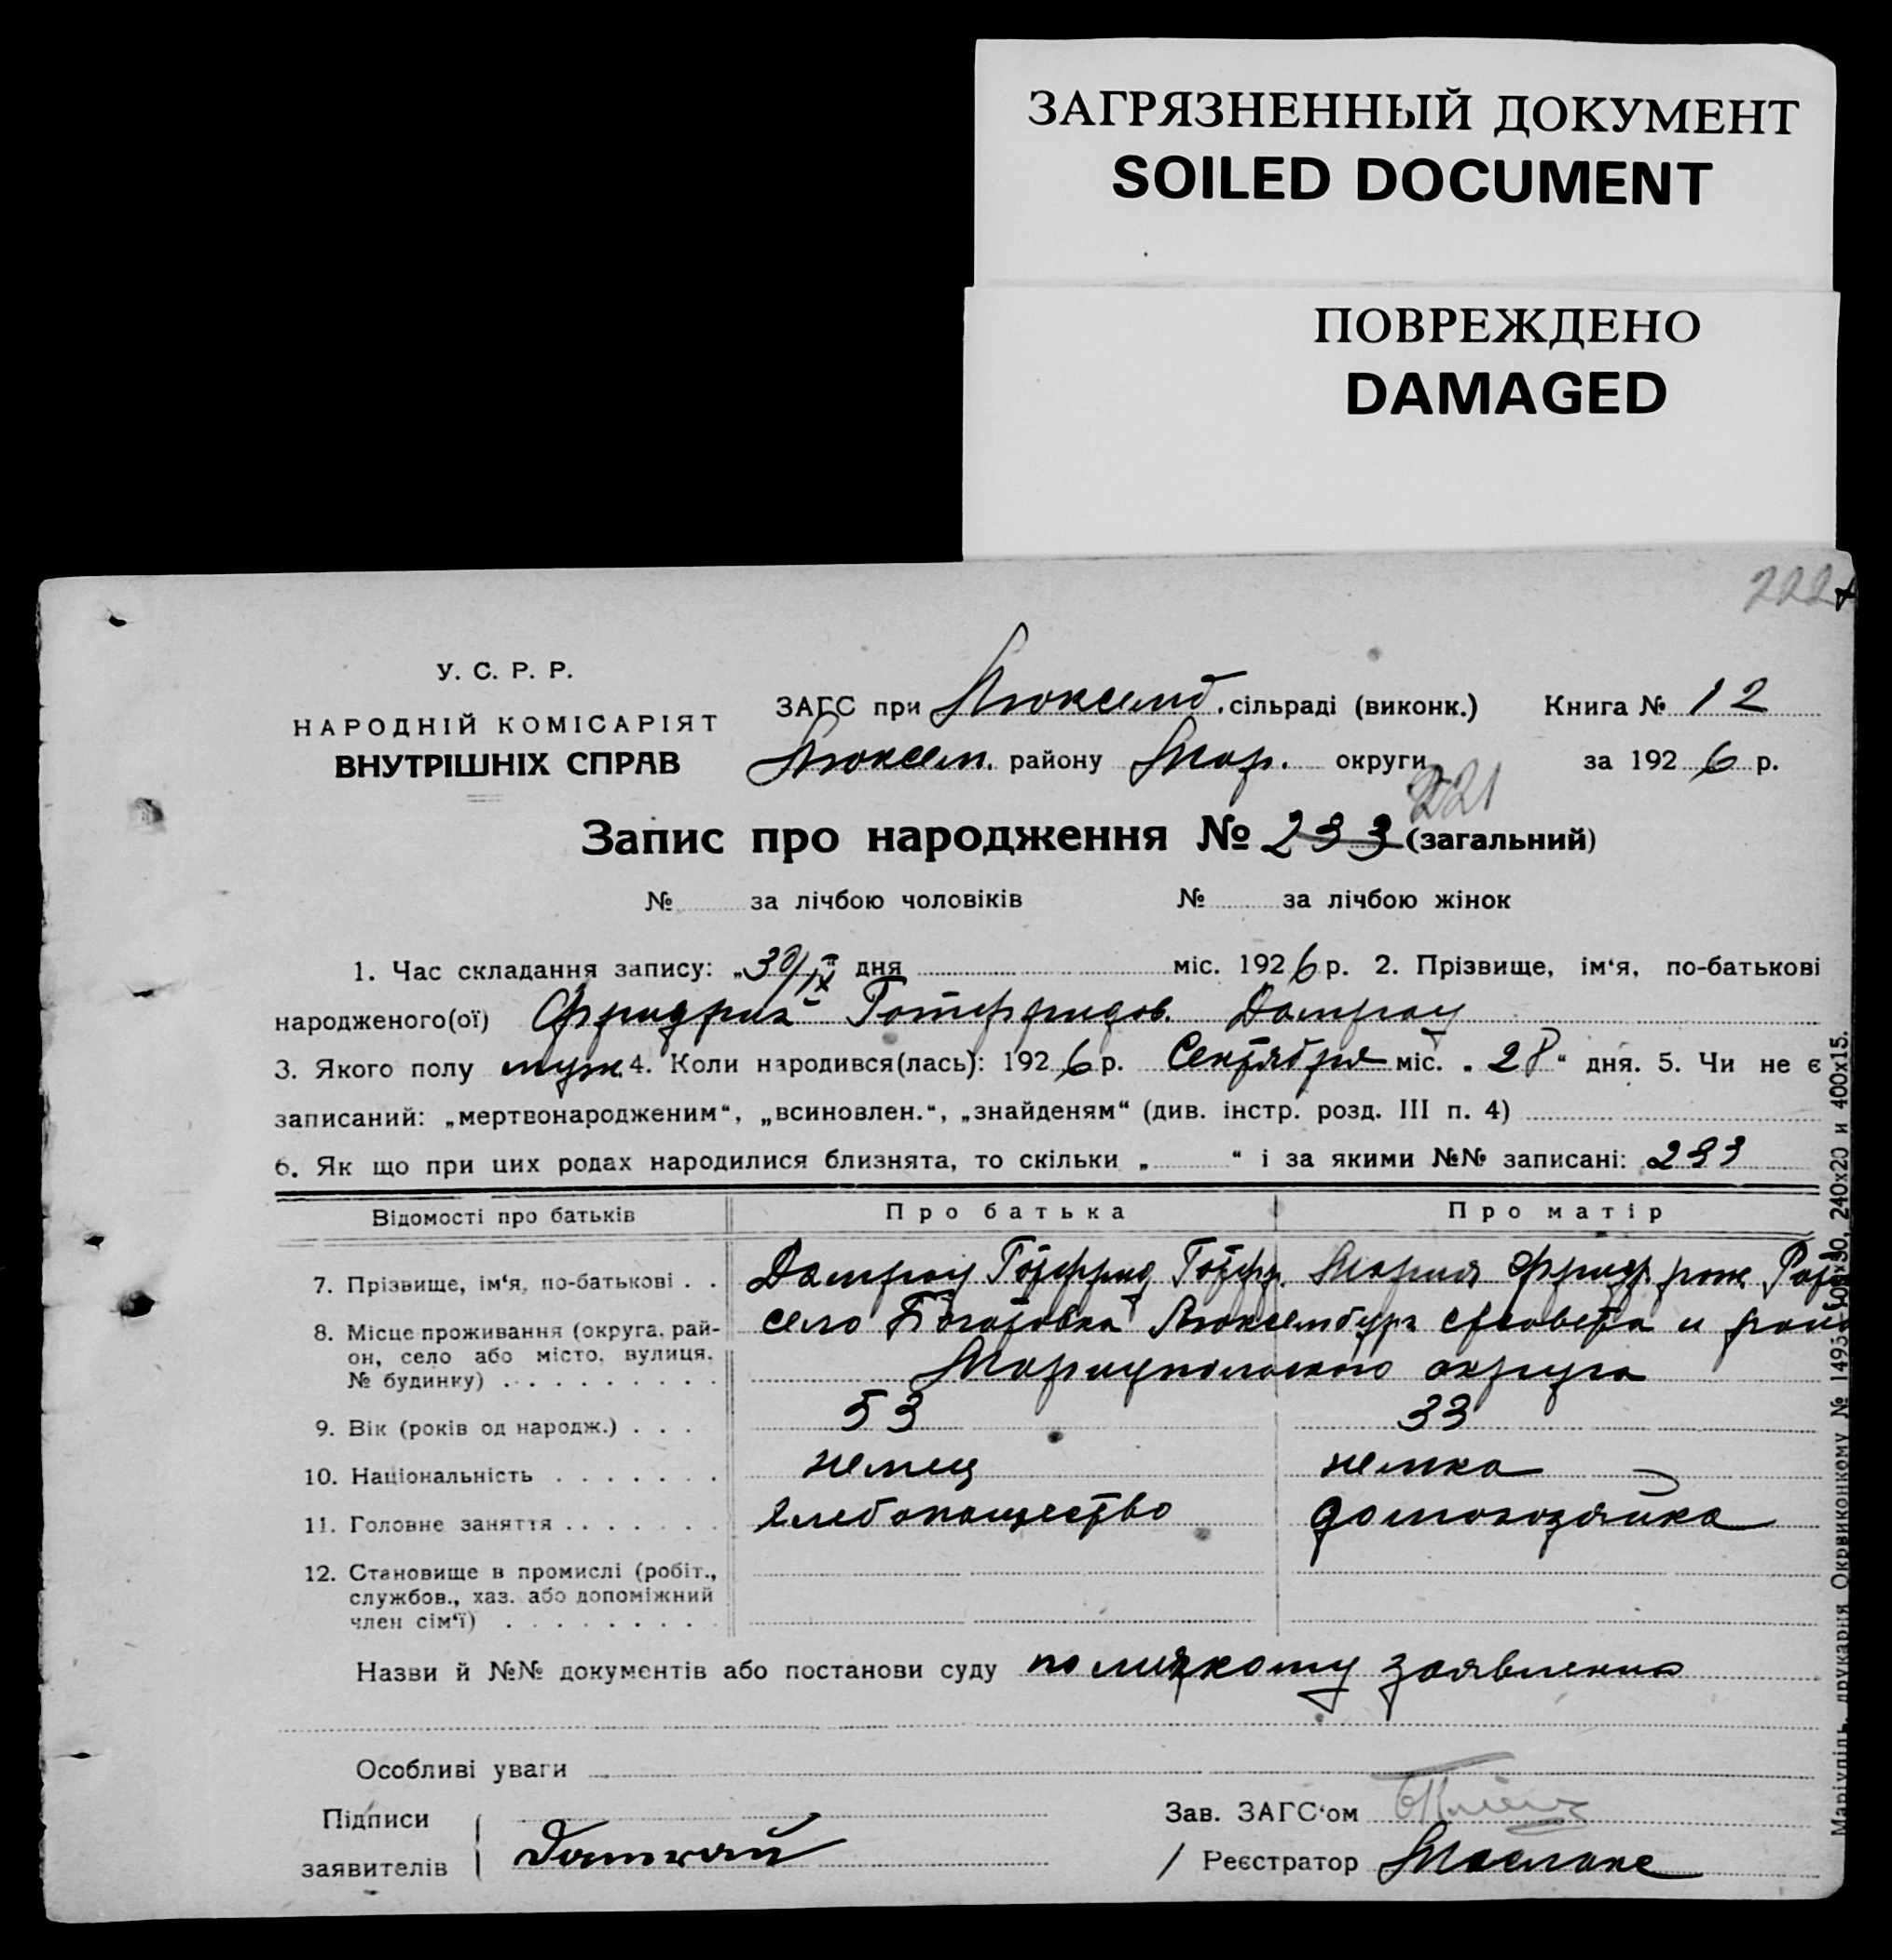 ЗАГРЯЗНЕННЫЙ ДОКУМЕНТ
SOILED DOCUMENT
ПОВРЕЖДЕНО
DAMAGED
222
У. С. Р. Р.
НАРОДНІЙ КОМІСАРІЯТ
ВНУТРІШНІХ СПРАВ
ЗАГС при Люксемб. сільраді (виконк.) Книга № 12
Люксем. району Мар. округи за 1926 р.
221
Запис про народження № 233 (загальний)
№ за лічбою чоловіків № за лічбою жінок
1. Час складання запису: „30/IX“ дня міс. 1926 р. 2. Прізвище, ім‘я, по-батькові
народженого(ої) Фридрих Готфридов. Дамрау
3. Якого полу муж. 4. Коли народився(лась): 1926 р. Сентября міс. „28“ дня. 5. Чи не є
записаний: „мертвонародженим“, „всиновлен.“, „знайденям“ (див. інстр. розд. III п. 4)
6. Як що при цих родах народилися близнята, то скільки „ “ і за якими №№ записані: 233
Відомості про батьків Про батька Про матір
7. Прізвище, ім‘я, по-батькові . . Дамрау Готфрид Готфр. Мария Фридр. рож.
8. Місце проживання (округа, рай-
он, село або місто, вулиця,
№ будинку) . . . . . . . . .
село Боготовка Люксембург с/совета и
Мариупольского округа
9. Вік (років од народж.) . . . 53 33
10. Національність . . . . . . . немец немка
11. Головне заняття . . . . . . . хлебопашество домохозяйка
12. Становище в промислі (робіт.,
службов., хаз. або допоміжний
член сім‘ї) . . . . . . . . .
Назви й №№ документів або постанови суду по заявлению
Особливі уваги
Підписи
заявителів
Зав. ЗАГС‘ом
Реєстратор
Маріупіль, друкарня Окрвиконкому № 1495 240х20 и 400х15.